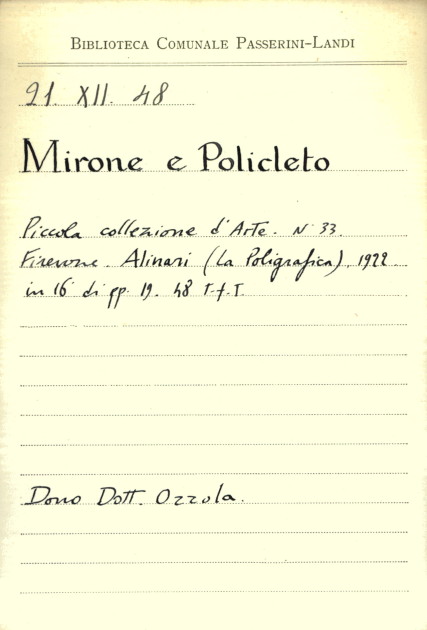 BIBLIOTECA COMUNALE PASSERINI-LANDI
21. XII. 48
Mirone e Policleto
Piccola collezione d'Arte. N. 33.
Firenze. Alinari (La Poligrafica), 1922
in 16° di pp. 19. 48 T.f.T.
Dono Dott. Ozzola.